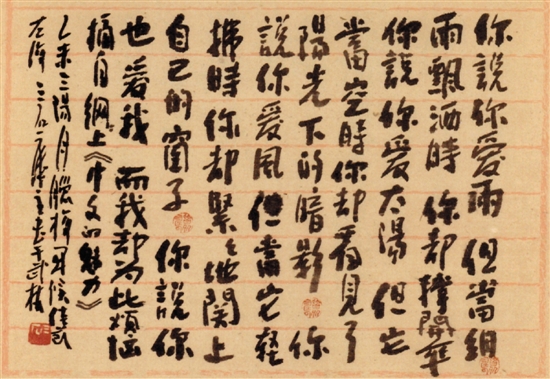 你說你愛雨但當細
雨飄洒時你却撐開傘
你說你愛太陽但它
當空時你却看見了
陽光下的暗影你
說你愛風但當它輕
拂時你却緊々地関上
自己的窗子你說你
也愛我而我却為此煩惱
摘自網上《中文的魅力》
乙未三陽月臘梅
左海